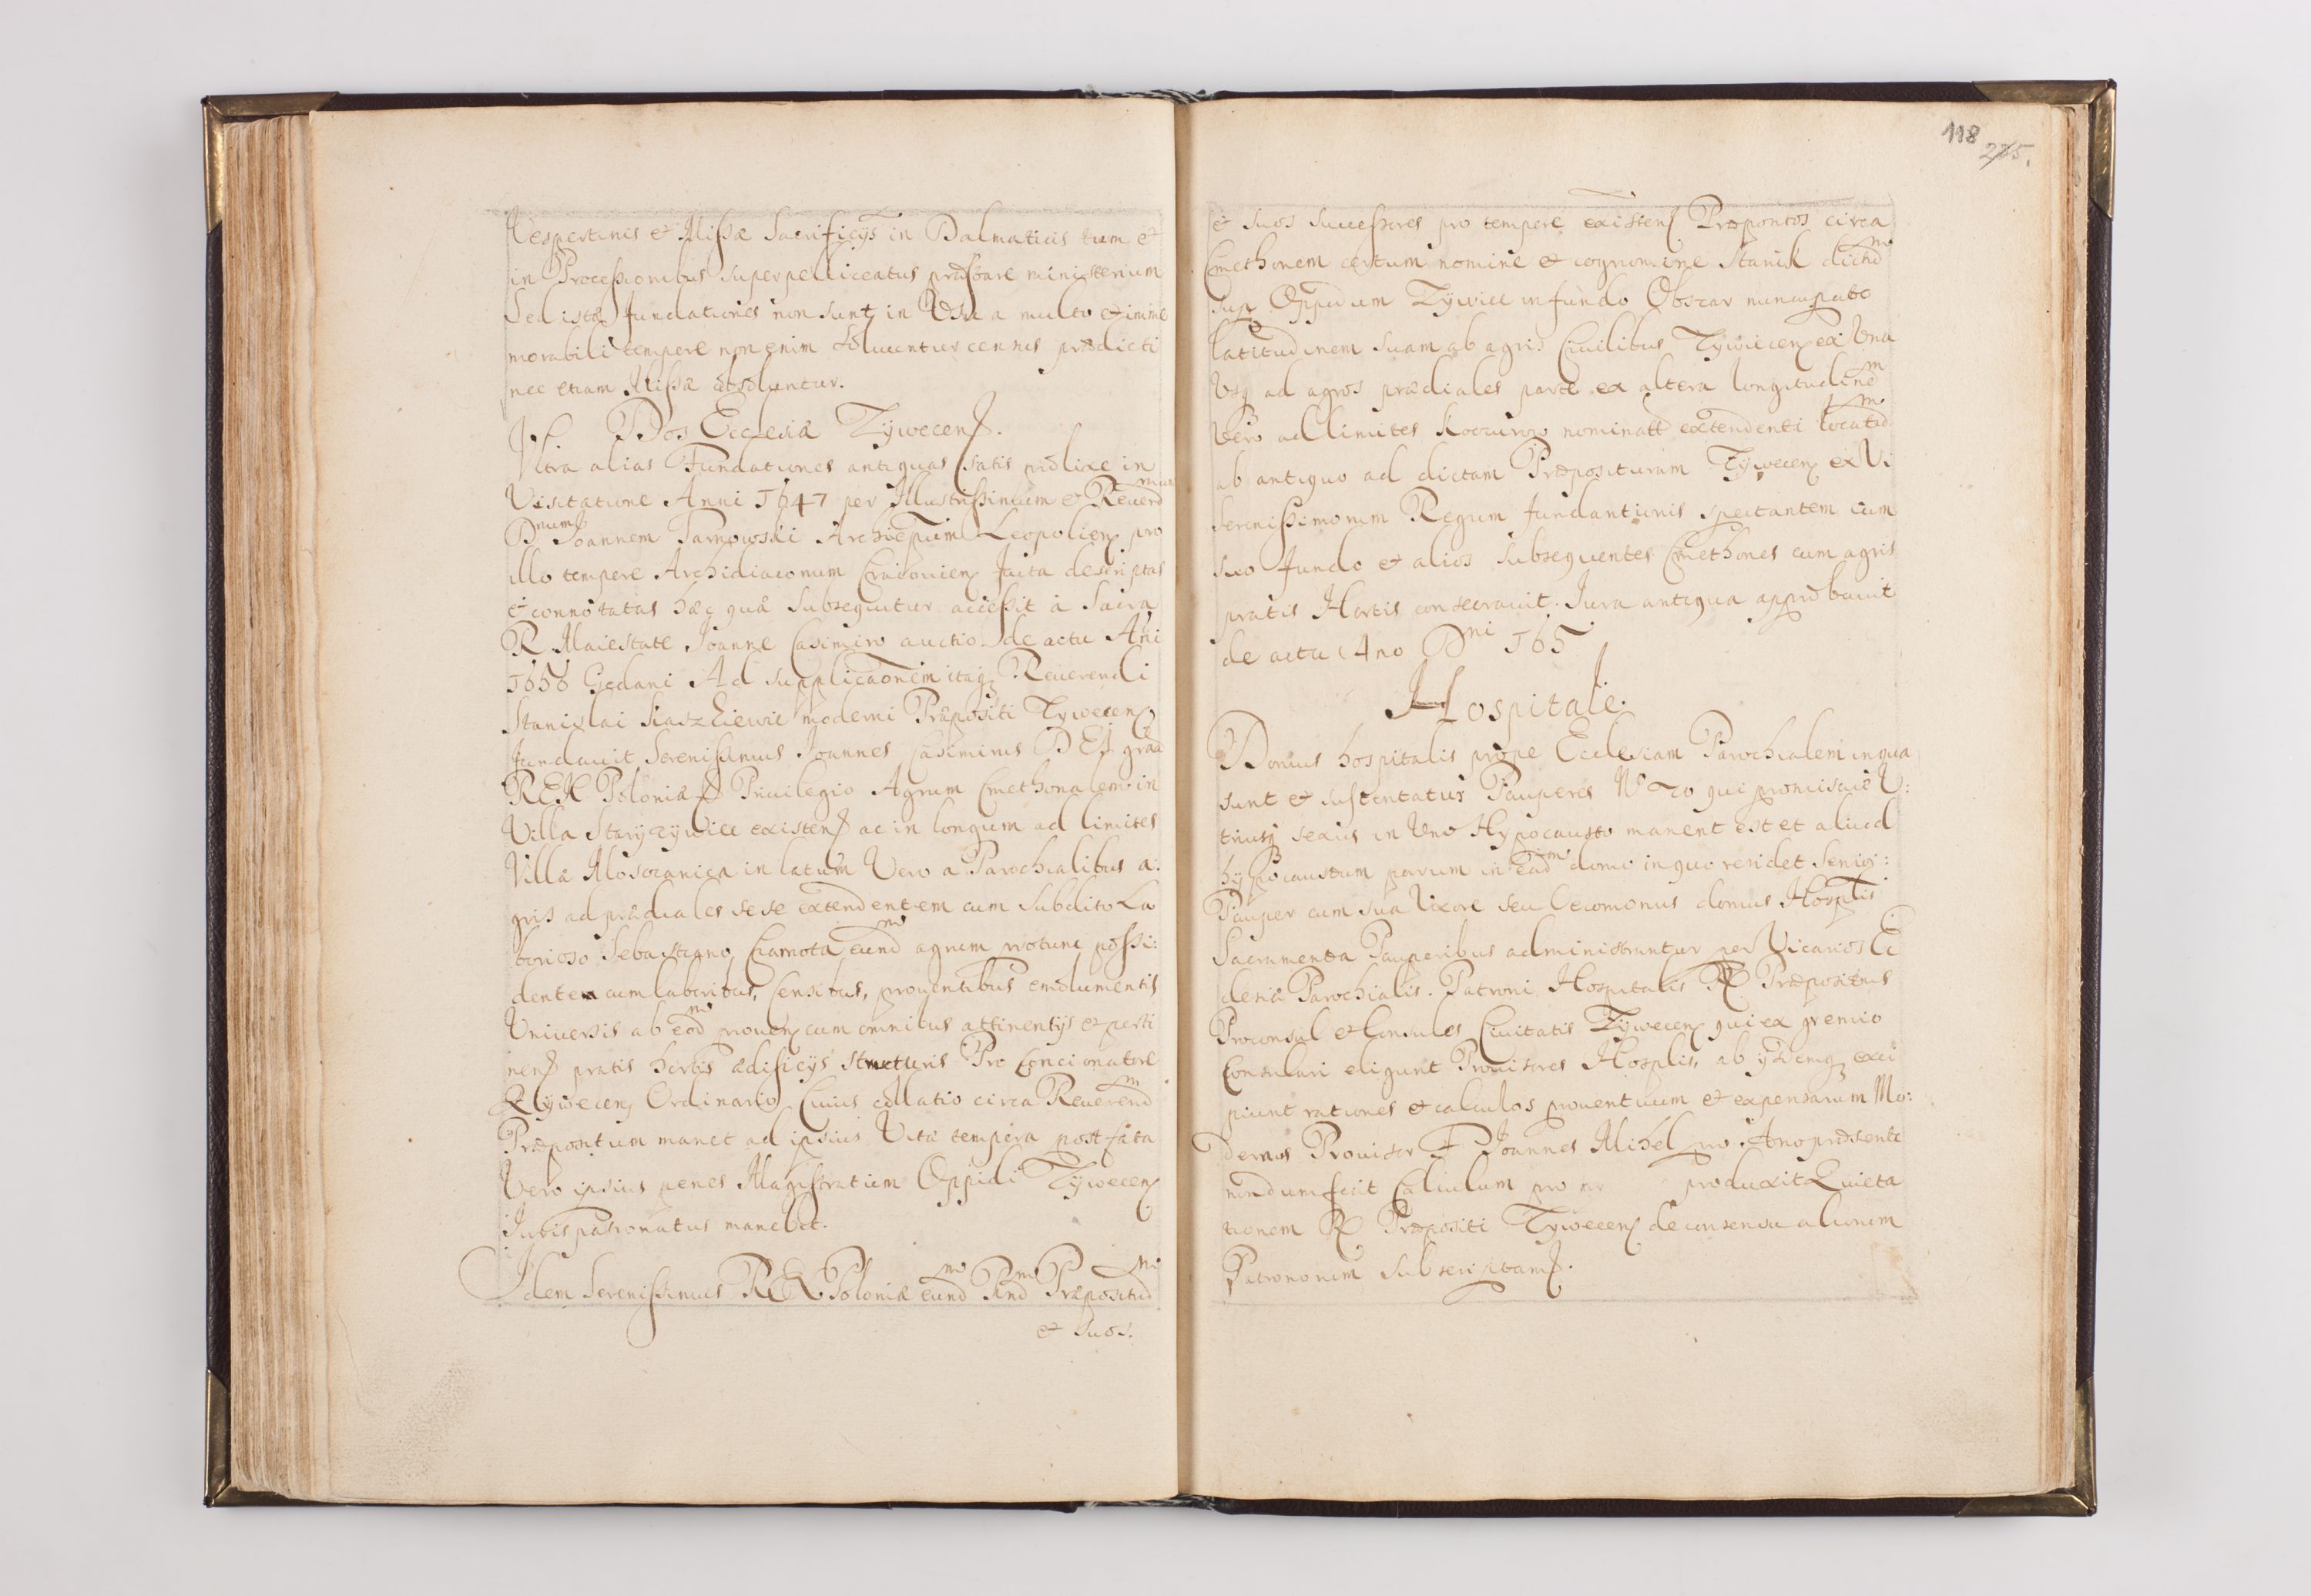 Vespertinis et Missæ Sacrificijs in Dalmaticis tum et
in Processionibus superpelliceatus præstare ministerium
Sed istæ fundationes non sunt in Usu a multo et imme
morabili tempore non enim soluuntur census prædicti
nec etiam Missæ absoluuntur.
Dos Ecclesiæ Zÿwecen.
Vltra alias Fundationes antiquas satis prolixe in
Visitatione Anni 1647 per Illustrissimum et Reuerendmum
Dnum Joannem Tarnowski Archiepum Leopolien pro
illo tempore Archidiaconum Cracouien facta descriptas
et connotatas hæc quæ subsequitur accessit a Sacra
R Maiestate Joanne Casimiro auctio de actu Ani
1656 Gedani Ad supplicaonem itaq Reuerendi
Stanislai moderni Præpositi Zywecen
fundauit Serenissimus Joannes Casimirus DEI graa
REX Poloniæ Priuilegio Agrum Cmethonalem in
Villa Starÿ zÿwiec existen ac in longum ad limites
Villæ Moszczanica in latum Vero a Parochialibus a:
gris ad prædiales sese extendentem cum subdito La
borioso Sebastiano Czarnota eundm agrum protunc possi:
dentem cum laboribus, Censibus, prouentibus emolumentis
Uniuersis ab eodm prouen cum omnibus attinentijs et perti
nen pratis hortis ædificijs structuris Pro Concionatore
Zÿwecen Ordinario Cuius collatio circa Reuerendm
Præpositum manet ad ipsius Vitæ tempora post fata
Vero ipsius penes Magistratum Oppidi Zÿwecen
Juris patronatus manebit.
Idem Serenissimus REX Poloniæ eundm Rndm Præpositum
et suos.
118
275.
et suos successores pro tempore existen Præpositos circa
Cmethonem certum nomine et cognomine Stanik dictum
sup Oppidum Zÿwiec in fundo Obszar nuncupato
latitudinem suam ab agris Ciuilibus Zÿwiecen ex Una
Vsq ad agros prædiales parte ex altera longitudinem
Vero ad limites nominatt extendenti locatum
ab antiquo ad dictam Præposituram Zÿwecen ex Vi
Serenissimorum Regum fundantionis spectantem cum
suo fundo et alios subsequentes Cmethones cum agris
pratis Hortis consecrauit. Jura antiqua approbauit
de actu Ano Dni 165
Hospitale.
Domus hospitalis prope Ecclesiam Parochialem in qua
sunt et sustentatur Pauperes No 20 qui promiscuè V:
triusq sexus in Vno Hypocausto manent est et aliud
hÿpocaustum parum in eadm domo in quo residet Senior:
Pauper cum sua Vxore seu Oeconomus domus Hosplis
Sacramenta Pauperibus administruntur per Vicarios Ec
clesiæ Parochialis. Patroni Hospitalis R Præpositus
Proconsul et Consules Ciuitatis Zÿwecen qui ex gremio
Consulari eligunt Prouisores Hosplis, ab ijsdemq exci
piunt rationes et calculos prouentuum et expensarum Mo:
dernus Prouisor F Joannes Mihel pro Ano præsenti
nondum fecit Calculum pro produxit Quieta
tionem R Præpositi Zÿwecen de consensu aliorum
Patronorum subscriptam.